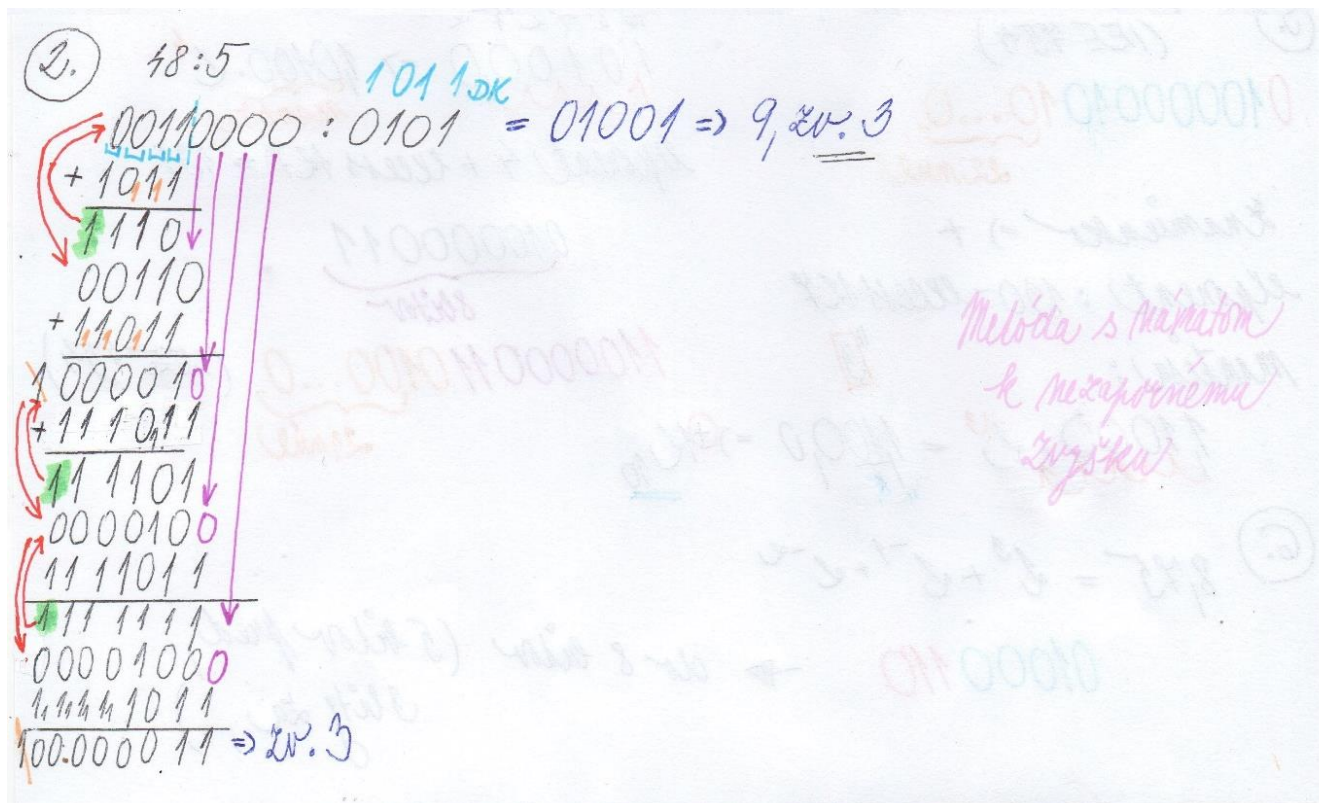 2. 48:5
1011 DK
00110000 : 0101 = 01001 => 9, zv. 3
+ 1011
1110
00110
+ 11011
1000010
+ 111011
111101
0000100
1111011
1111111
00001000
11111011
100000011 => zv. 3
Metóda s návratom
k nezápornému
zvyšku